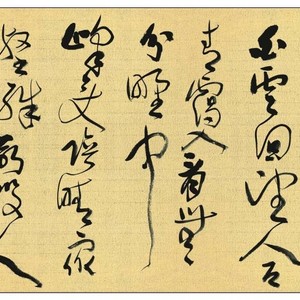 白雲回望合
青靄入看無
分野中
峰變陰晴衆
壑殊欲投人